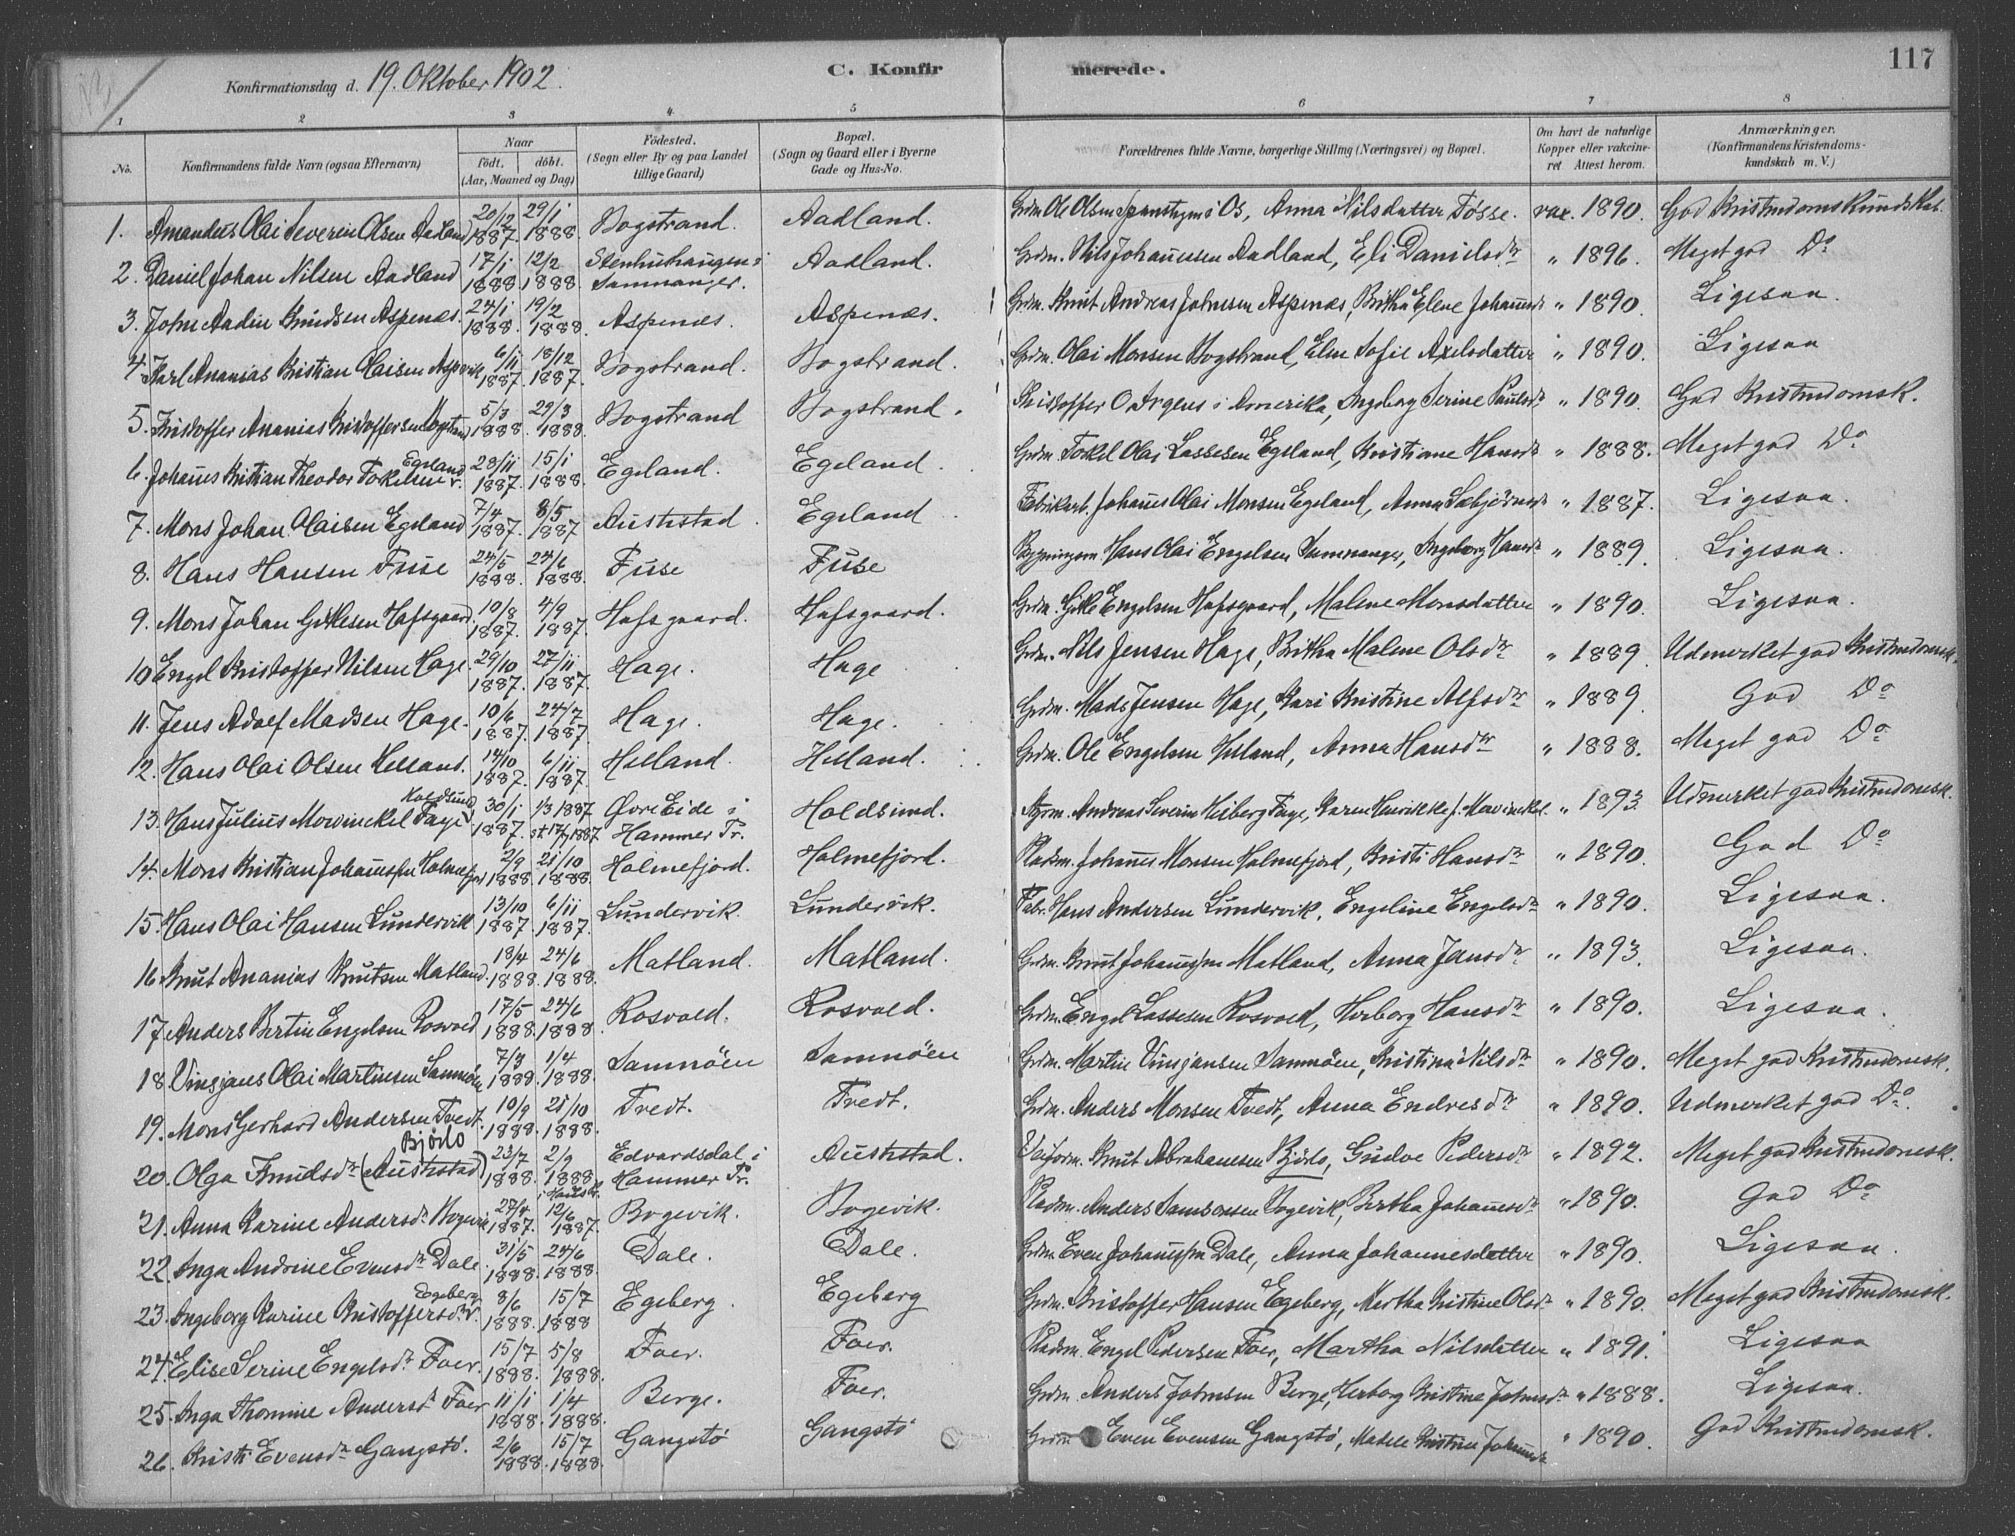 117
Konfirmationsdag d. 19. Oktober 1902.
C. Konfirmerede.
1 2 3 4 5 6 7 8
No. Konfirmandens fulde Navn (ogsaa Efternavn) Naar født, døbt. (Aar, Maaned og Dag) Fødested. (Sogn eller By og paa Landet tillige Gaard) Bopæl. (Sogn og Gaard eller i Byerne Gade og Hus-No. Forældrenes fulde Navne, borgerlige Stilling (Næringsvei) og Bopæl. Om havt de naturlige Kopper eller vakcineret Attest herom. Anmærkninger. (Konfirmandens Kristendomskundskab m. V.)
1. Amandus Olai Severin Olsen Aadland 20/12 1887. 29/1 1888. Bogstrand. Aadland. Grdm. Ole Olsen i Os, Anna Nilsdatter Tøsse. vax. 1890. God Kristendomskundskab.
2. Daniel Johan Nilsen Aadland 17/1 1888 12/2 1888 Stenhuhaugen i Samnanger. Aadland. Grdm. Nils Johannesen Aadland, Eli Danielsdtr " 1896. Meget god Do
3. John Aadin Knudsen Aspenæs. 24/1 1888. 19/2 1888. Aspenæs. Aspenæs. Grdm. Knut Andreas Johnsen Aspenæs, Britha Elene Johannesd " 1890. Ligesaa.
4. Karl Ananias Kristian Olaisen 6/11 1887. 18/12 1887. Bogstrand. Bogstrand. Grdm. Olai Monsen Bogstrand, Elen Sofie Axelsdatter " 1890. Ligesaa
5. Kristoffer Ananias Kristoffersen Bogstrand 5/3 1888. 29/3 1888. Bogstrand Bogstrand. Kristoffer O. i Amerika, Ingeborg Serine Paulsd. " 1890. God Kristendomsk.
6. Johanes Kristian Theodor Tokelsen Egeland 28/11 1887. 15/1 1888. Egeland. Egeland. Grdm. Tokel Olai Lassesen Egeland, Kristiane Hansd " 1888. Meget god Do
7. Mons Johan Olaisen Egeland 7/4 1887. 8/5 1887 Austestad. Egeland Fabrikarb. Johanes Olai Monsen Egeland, Anna " 1887. Ligesaa.
8. Hans Hansen Fuse 24/5 1888. 24/6 1888. Fuse Fuse Hans Olai Engelsen Samnanger, Ingeborg Hansd " 1889. Ligesaa.
9. Mons Johan Gitlesen Hafsgaard 10/8 1887. 4/9 1887. Hafsgaard. Hafsgaard. Grdm. Gitle Engelsen Hafsgaard, Malene Monsdatter " 1890. Ligesaa.
10 Engel Kristoffer Nilsen Hage 29/10 1887. 27/11 1887. Hage. Hage Grdm. Nils Jensen Hage, Britha Malene Olsdtr " 1889 Udmerket god Kristendomsk.
11. Jens Adolf Madsen Hage. 10/6 1887. 24/7 1887. Hage. Hage. Grdm. Mads Jensen Hage, Kari Kristine Alfsdtr " 1889. God Do
12. Hans Olai Olsen Helland. 14/10 1887. 6/11 1887. Helland. Helland. Grdm. Ole Engelsen Helland, Anna Hansdtr " 1888. Meget god Do
13. Hans Julius Mowinckel Faye Holdsund 30/1 1887. 1/3 1887 st 17/7 1887 Øvre Eide i Hammer Pr. Holdsund. Andreas Severin Heiberg Faye, Karen Henrikke f. Mowinckel. " 1893. Udmerket god Kristendomsk.
14. Mons Kristian Johannessen Holmefjord 2/9 1888. 21/10 1888. Holmefjord. Holmefjord. Pladsm. Johanes Monsen Holmefjord, Kristi Hansdtr " 1890. God Do
15. Hans Olai Hansen Lundervik 13/10 1887. 6/11 1887. Lundervik. Lundervik. Fabr. Hans Andersen Lundervik, Engeline Engelsdtr " 1890. Ligesaa.
16. Knut Ananias Knutsen Matland. 18/4 1888. 24/6 1888. Matland. Matland. Grdm. Knut Johannessen Matland, Anna Jansdtr " 1893. Ligesaa.
17. Anders Bertin Engelsen Rosvold 17/5 1888. 24/6 1888. Rosvold. Rosvold. Grdm. Engel Lassesen Rosvold, Herborg Hansdtr " 1890. Ligesaa.
18. Vinsjans Olai Martinsen Samnøen 7/3 1888. 1/4 1888. Samnøen Samnøen Grdm. Martin Vinsjansen Samnøen, Kristina Nilsdtr " 1890. Meget god Kristendomsk.
19. Mons Gerhard Andersen Tvedt. 10/9 1888. 21/10 1888. Tvedt. Tvedt. Grdm. Anders Monsen Tvedt, Anna Endresdtr " 1890. Udmerket god Do.
20. Olga Knudsdtr (Austestad) Bjørlo 23/7 1888. 2/9 1888. Edvardsdal i Hammer Pr. Austestad. Knut Abrahamsen Bjørlo, Gudve Pedersdtr " 1892. Meget god Kristendomsk.
21. Anna Karine Andersdtr Bogevik 27/4 1887. 12/6 1887. Bogevik. Bogevik. Pladsm. Anders Samsonsen Bogevik, Bertha Johannesdtr " 1890. God Do
22. Inga Andrine Evensdtr Dale 31/5 1888. 24/6 1888. Dale. Dale. Grdm. Even Johannessen Dale, Anna Johannesdatter " 1890. Ligesaa.
23. Ingeborg Karine Kristoffersdtr. Egeberg 8/6 1888. 15/7 1888 Egeberg. Egeberg Grdm. Kristoffer Hansen Egeberg, Martha Kristine Olsdtr " 1890. Meget god Kristendomsk.
24. Elise Serine Engelsdtr Foer. 15/7 1888. 5/8 1888. Foer. Foer. Pladsm. Engel Pedersen Foer, Martha Nilsdatter " 1891. Ligesaa
25. Inga Thomine Andersd Foer 11/1 1888. 1/4 1888. Berge. Foer. Grdm. Anders Johnsen Berge, Herborg Kristine Johnsd " 1888. Ligesaa.
26. Kristi Evensdtr Gangstø. 2/6 1888. 15/7 1888. Gangstø Gangstø Grdm Even Evensen Gangstø, Kristine Johannesdtr " 1890. God Kristendomsk.